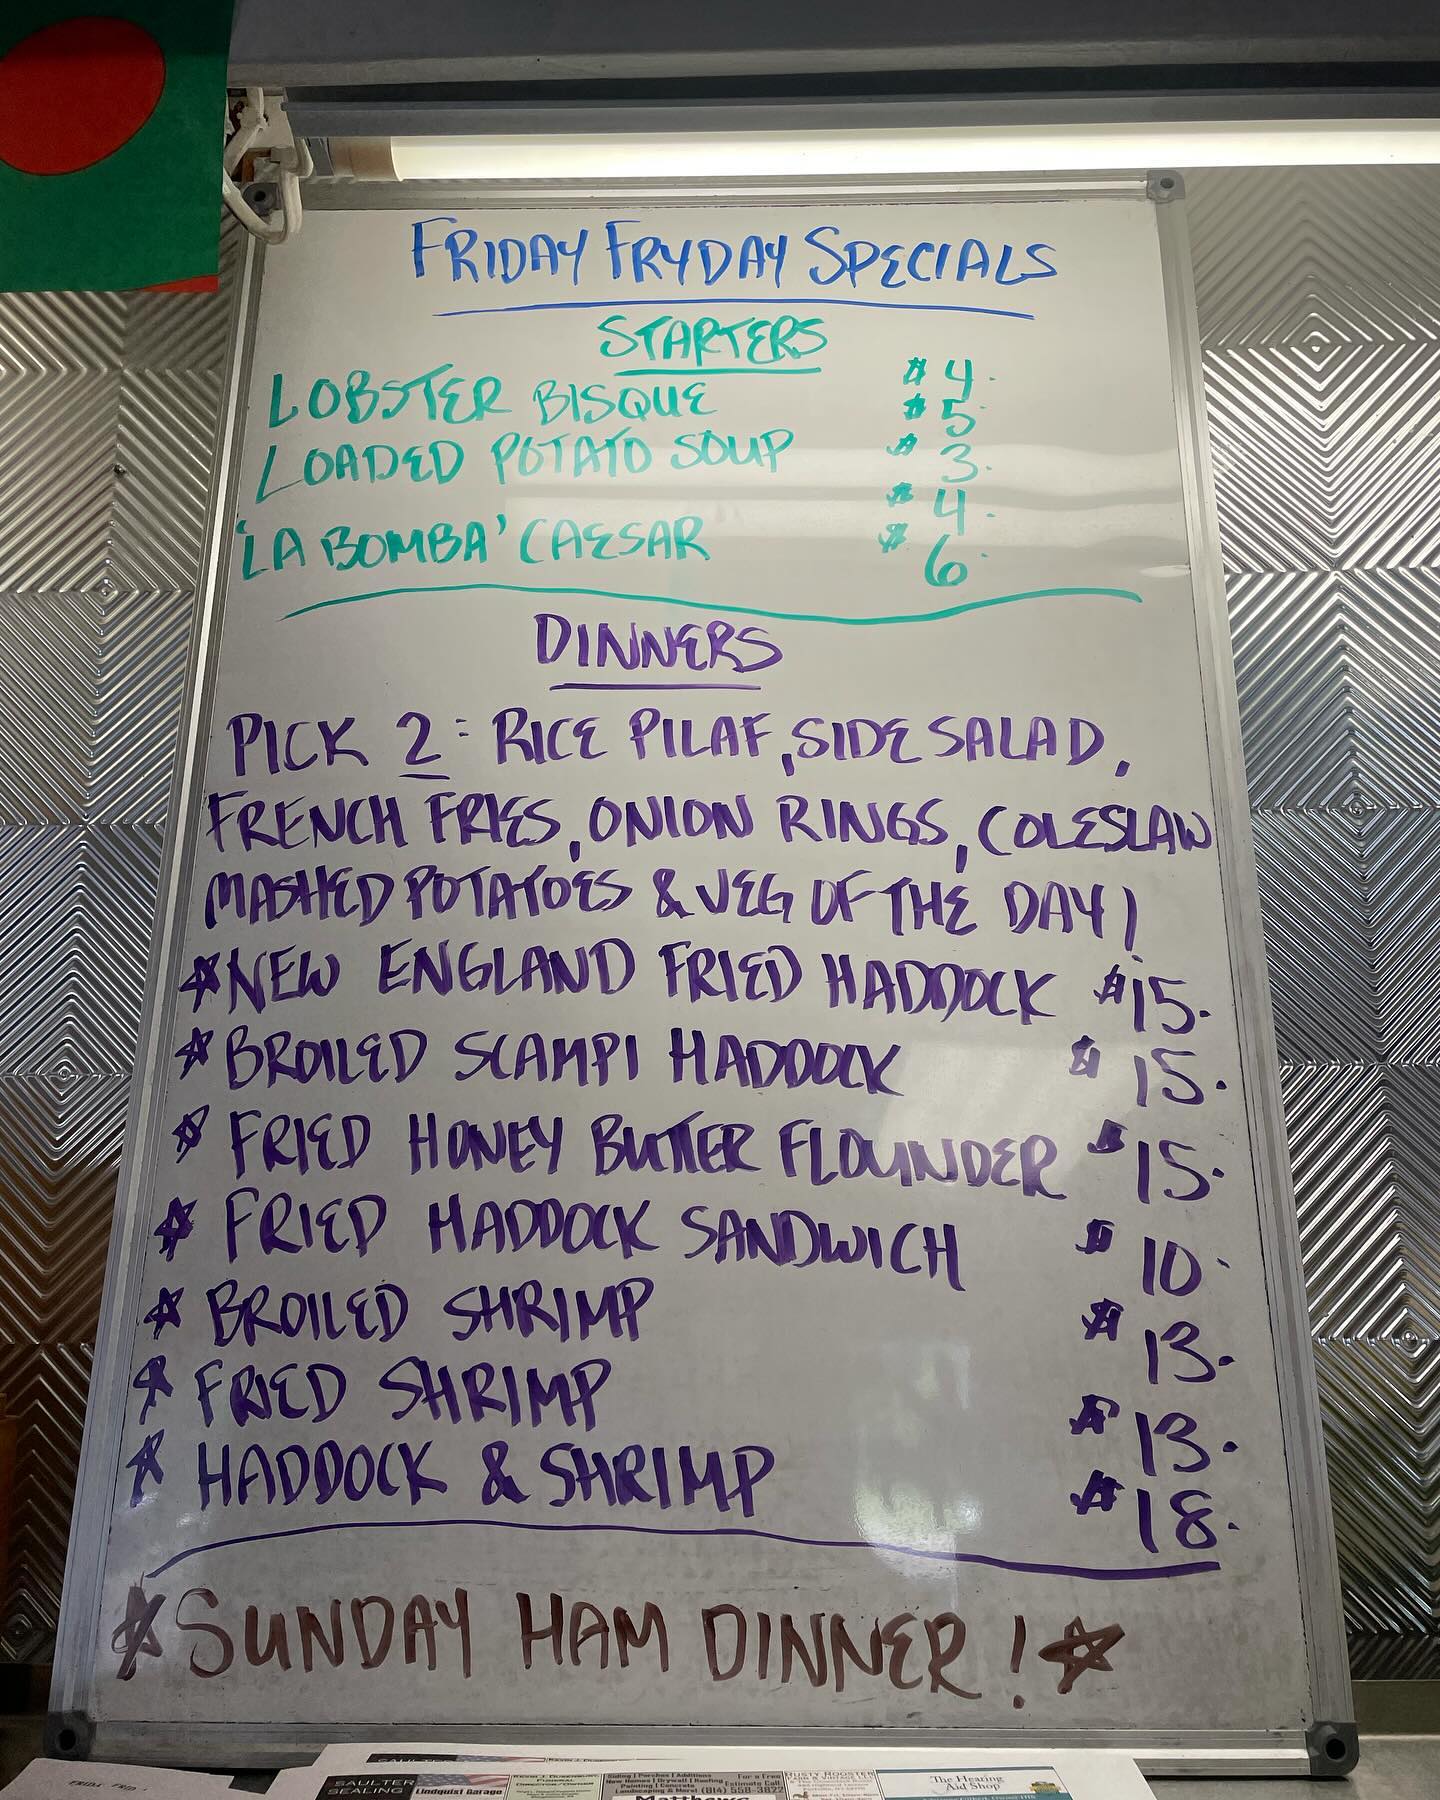 FRIDAY FRYDAY SPECIALS
STARTERS
LOBSTER BISQUE $4.
$5.
LOADED POTATO SOUP $3.
$4.
'LA BOMBA' CAESAR $6.
DINNERS
PICK 2: RICE PILAF, SIDE SALAD,
FRENCH FRIES, ONION RINGS, COLESLAW
MASHED POTATOES & VEG OF THE DAY!
NEW ENGLAND FRIED HADDOCK $15.
BROILED SCAMPI HADDOCK $15.
FRIED HONEY BUTTER FLOUNDER $15.
FRIED HADDOCK SANDWICH $10.
BROILED SHRIMP $13.
FRIED SHRIMP $13.
HADDOCK & SHRIMP $18.
SUNDAY HAM DINNER!
SAULTER
SEALING
Lindquist Garage
Siding | Porches | Additions
New Homes | Drywall | Roofing
Painting | Concrete
For a Free
Estimate Call
(814) 558-3822
Matthews
RUSTY ROOSTER
The Hearing
Aid Shop